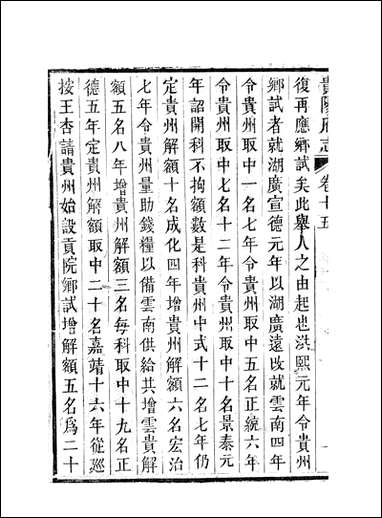 貴陽府志 卷十五
復再應鄉試矣此舉人之由起也洪熙元年令貴州
鄉試者就湖廣宣德元年以湖廣遠改就雲南四年
令貴州取中一名七年令貴州取中五名正統六年
令貴州取中七名十二年令貴州取中十名景泰元
年詔開科不拘額數是科貴州中式十二名七年仍
定貴州解額十名成化四年增貴州解額六名宏治
七年令貴州量助錢糧以備雲南供給共增雲貴解
額五名八年增貴州解額三名每科取中十九名正
德五年定貴州解額取中二十名嘉靖十六年從巡
按王杏請貴州始設貢院鄉試增解額五名爲二十